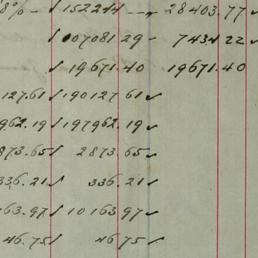 8% - √ 152244 - 28403.77 ✓
√ 007081 29 ✓ 7434 22 ✓
√ 19671.40 19671.40
127.61 √ 190127 61 ✓
962.19 √ 197962.19 ✓
873.65 √ 2873.65 ✓
336.21 √ 336.21 ✓
163.97 √ 10163 97 ✓
46.75 √ 46 75 ✓